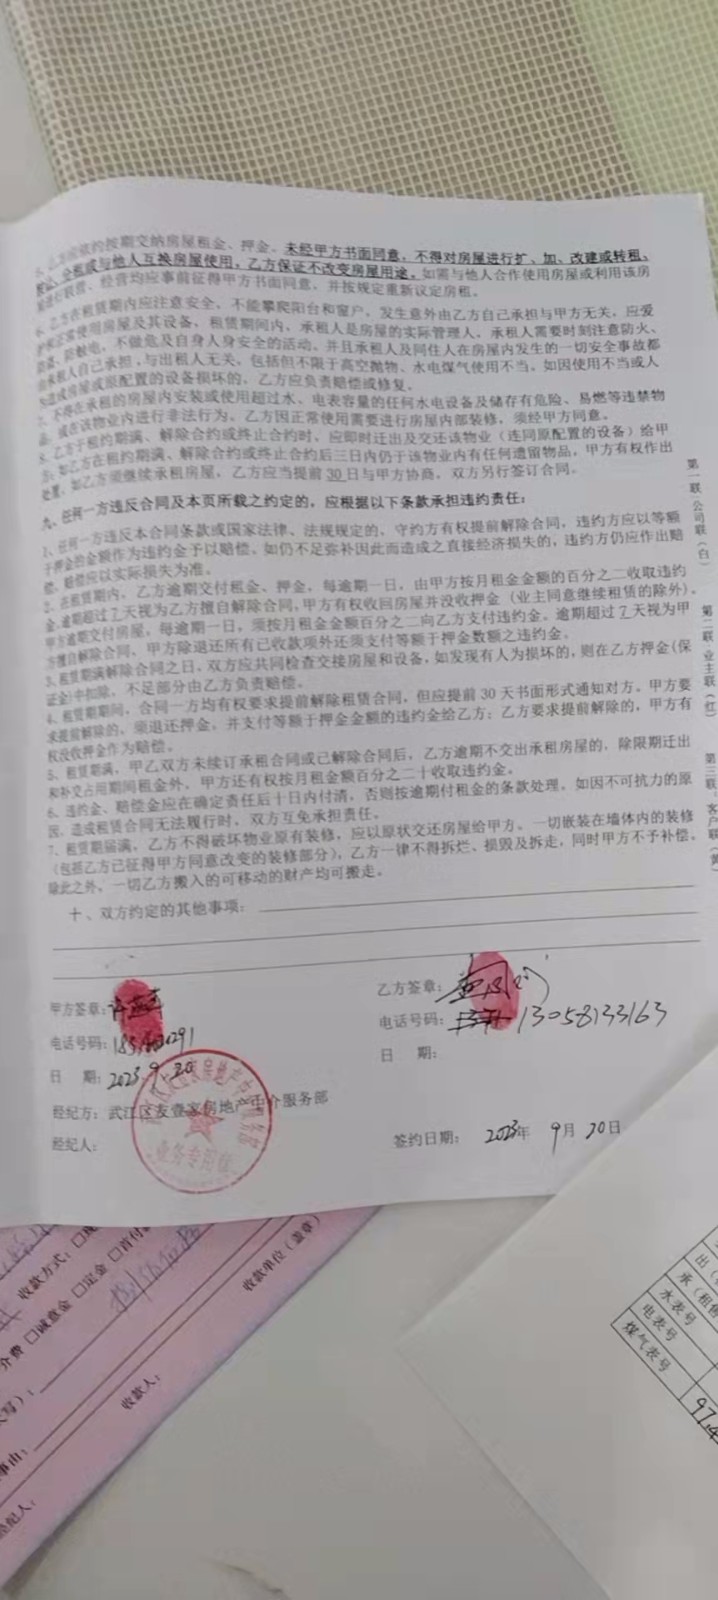 按期交纳房屋租金、押金。未经甲方书面同意，不得对房屋进行扩、加、改建或转租、
全租或与他人互换房屋使用，乙方保证不改变房屋用途，如需与他人合作使用房屋或利用该房
经营均应事前征得甲方书面同意，并按规定重新议定房租。
6、乙方在租赁期内应注意安全，不能攀爬阳台和窗户，发生意外由乙方自己承担与甲方无关，应爱
护和正常使用房屋及其设备，租赁期间内，承租人是房屋的实际管理人，承租人需要时刻注意防火、
防盗、防触电，不做危及自身人身安全的活动，并且承租人及同住人在房屋内发生的一切安全事故都
由承租人自己承担，与出租人无关，包括但不限于高空抛物、水电煤气使用不当。如因使用不当或人
为造成房屋或原配置的设备损坏的，乙方应负责赔偿或修复。
7、不得在承租的房屋内安装或使用超过水、电表容量的任何水电设备及储存有危险、易燃等违禁物
品，或在该物业内进行非法行为，乙方因正常使用需要进行房屋内部装修，须经甲方同意。
8、乙方于租约期满、解除合约或终止合约时，应即时迁出及交还该物业（连同原配置的设备）给甲
方；如乙方在租约期满、解除合约或终止合约后三日内仍于该物业内有任何遗留物品，甲方有权作出
处置。如乙方须继续承租房屋，乙方应当提前30日与甲方协商，双方另行签订合同。
九、任何一方违反合同及本页所载之约定的，应根据以下条款承担违约责任：
1、任何一方违反本合同条款或国家法律、法规规定的，守约方有权提前解除合同，违约方应以等额
于押金的金额作为违约金予以赔偿。如仍不足弥补因此而造成之直接经济损失的，违约方仍应作出赔
偿，赔偿应以实际损失为准。
2、在租赁期内，乙方逾期交付租金、押金，每逾期一日，由甲方按月租金金额的百分之二收取违约
金，逾期超过7天视为乙方擅自解除合同，甲方有权收回房屋并没收押金（业主同意继续租赁的除外）。
甲方逾期交付房屋，每逾期一日，须按月租金金额百分之二向乙方支付违约金。逾期超过7天视为甲
方擅自解除合同，甲方除退还所有已收款项外还须支付等额于押金数额之违约金。
3、租赁期满解除合同之日，双方应共同检查交接房屋和设备，如发现有人为损坏的，则在乙方押金(保
证金)中扣除，不足部分由乙方负责赔偿。
4、租赁期间，合同一方均有权要求提前解除租赁合同，但应提前30天书面形式通知对方。甲方要
求提前解除的，须退还押金，并支付等额于押金金额的违约金给乙方；乙方要求提前解除的，甲方有
权没收押金作为赔偿。
5、租赁期满，甲乙双方未续订承租合同或已解除合同后，乙方逾期不交出承租房屋的，除限期迁出
和补交占用期间租金外，甲方还有权按月租金额百分之二十收取违约金。
6、违约金、赔偿金应在确定责任后十日内付清，否则按逾期付租金的条款处理，如因不可抗力的原
因，造成租赁合同无法履行时，双方互免承担责任。
7、租赁期届满，乙方不得破坏物业原有装修，应以原状交还房屋给甲方。一切嵌装在墙体内的装修
（包括乙方已征得甲方同意改变的装修部分），乙方一律不得拆烂、损毁及拆走，同时甲方不予补偿。
除此之外，一切乙方搬入的可移动的财产均可搬走。
十、双方约定的其他事项：
甲方签章：
电话号码：
日 期：2023.9.20
经纪方：武江区友壹家房地产中介服务部
经纪人：
业务专用章
乙方签章：
电话号码：13058133163
日 期：
签约日期：2023年 9月20日
第一联：公司联（白） 第二联：业主联（红） 第三联：客户联（黄）
收款方式：
介费 □诚意金 □定金 □首付
收款单位（盖章）
收款人：
水表号
电表号
煤气表号